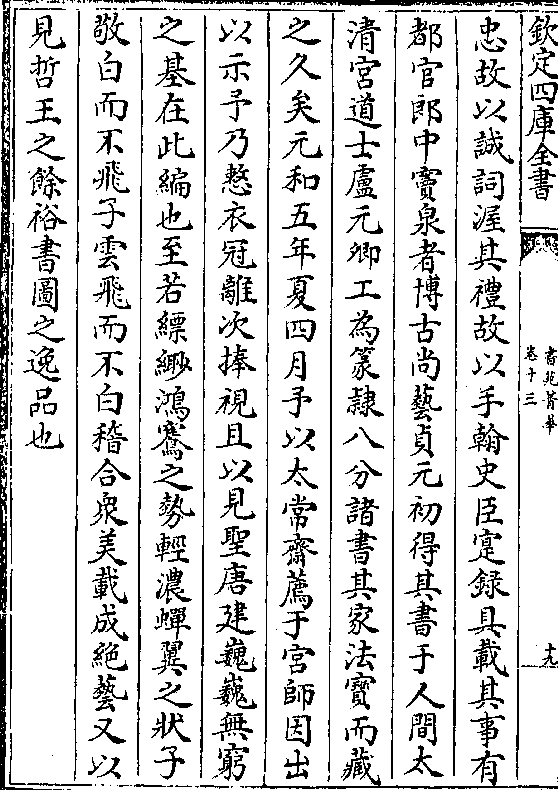 欽定四庫全書
書苑菁華
卷十三
十九
忠故以誠詞渥其禮故以手翰史臣寔録具載其事有
都官郎中竇泉者博古尚藝貞元初得其書于人間太
清宮道士盧元卿工為篆隷八分諸書其家法寶而藏
之久矣元和五年夏四月予以太常齋薦于宮師因出
以示予乃愸衣冠離次捧視且以見聖唐建巍巍無窮
之基在此編也至若縹緲鴻騫之勢輕濃蟬翼之狀子
敬白而不飛子雲飛而不白稽合衆美載成絶藝又以
見哲王之餘裕書圖之逸品也